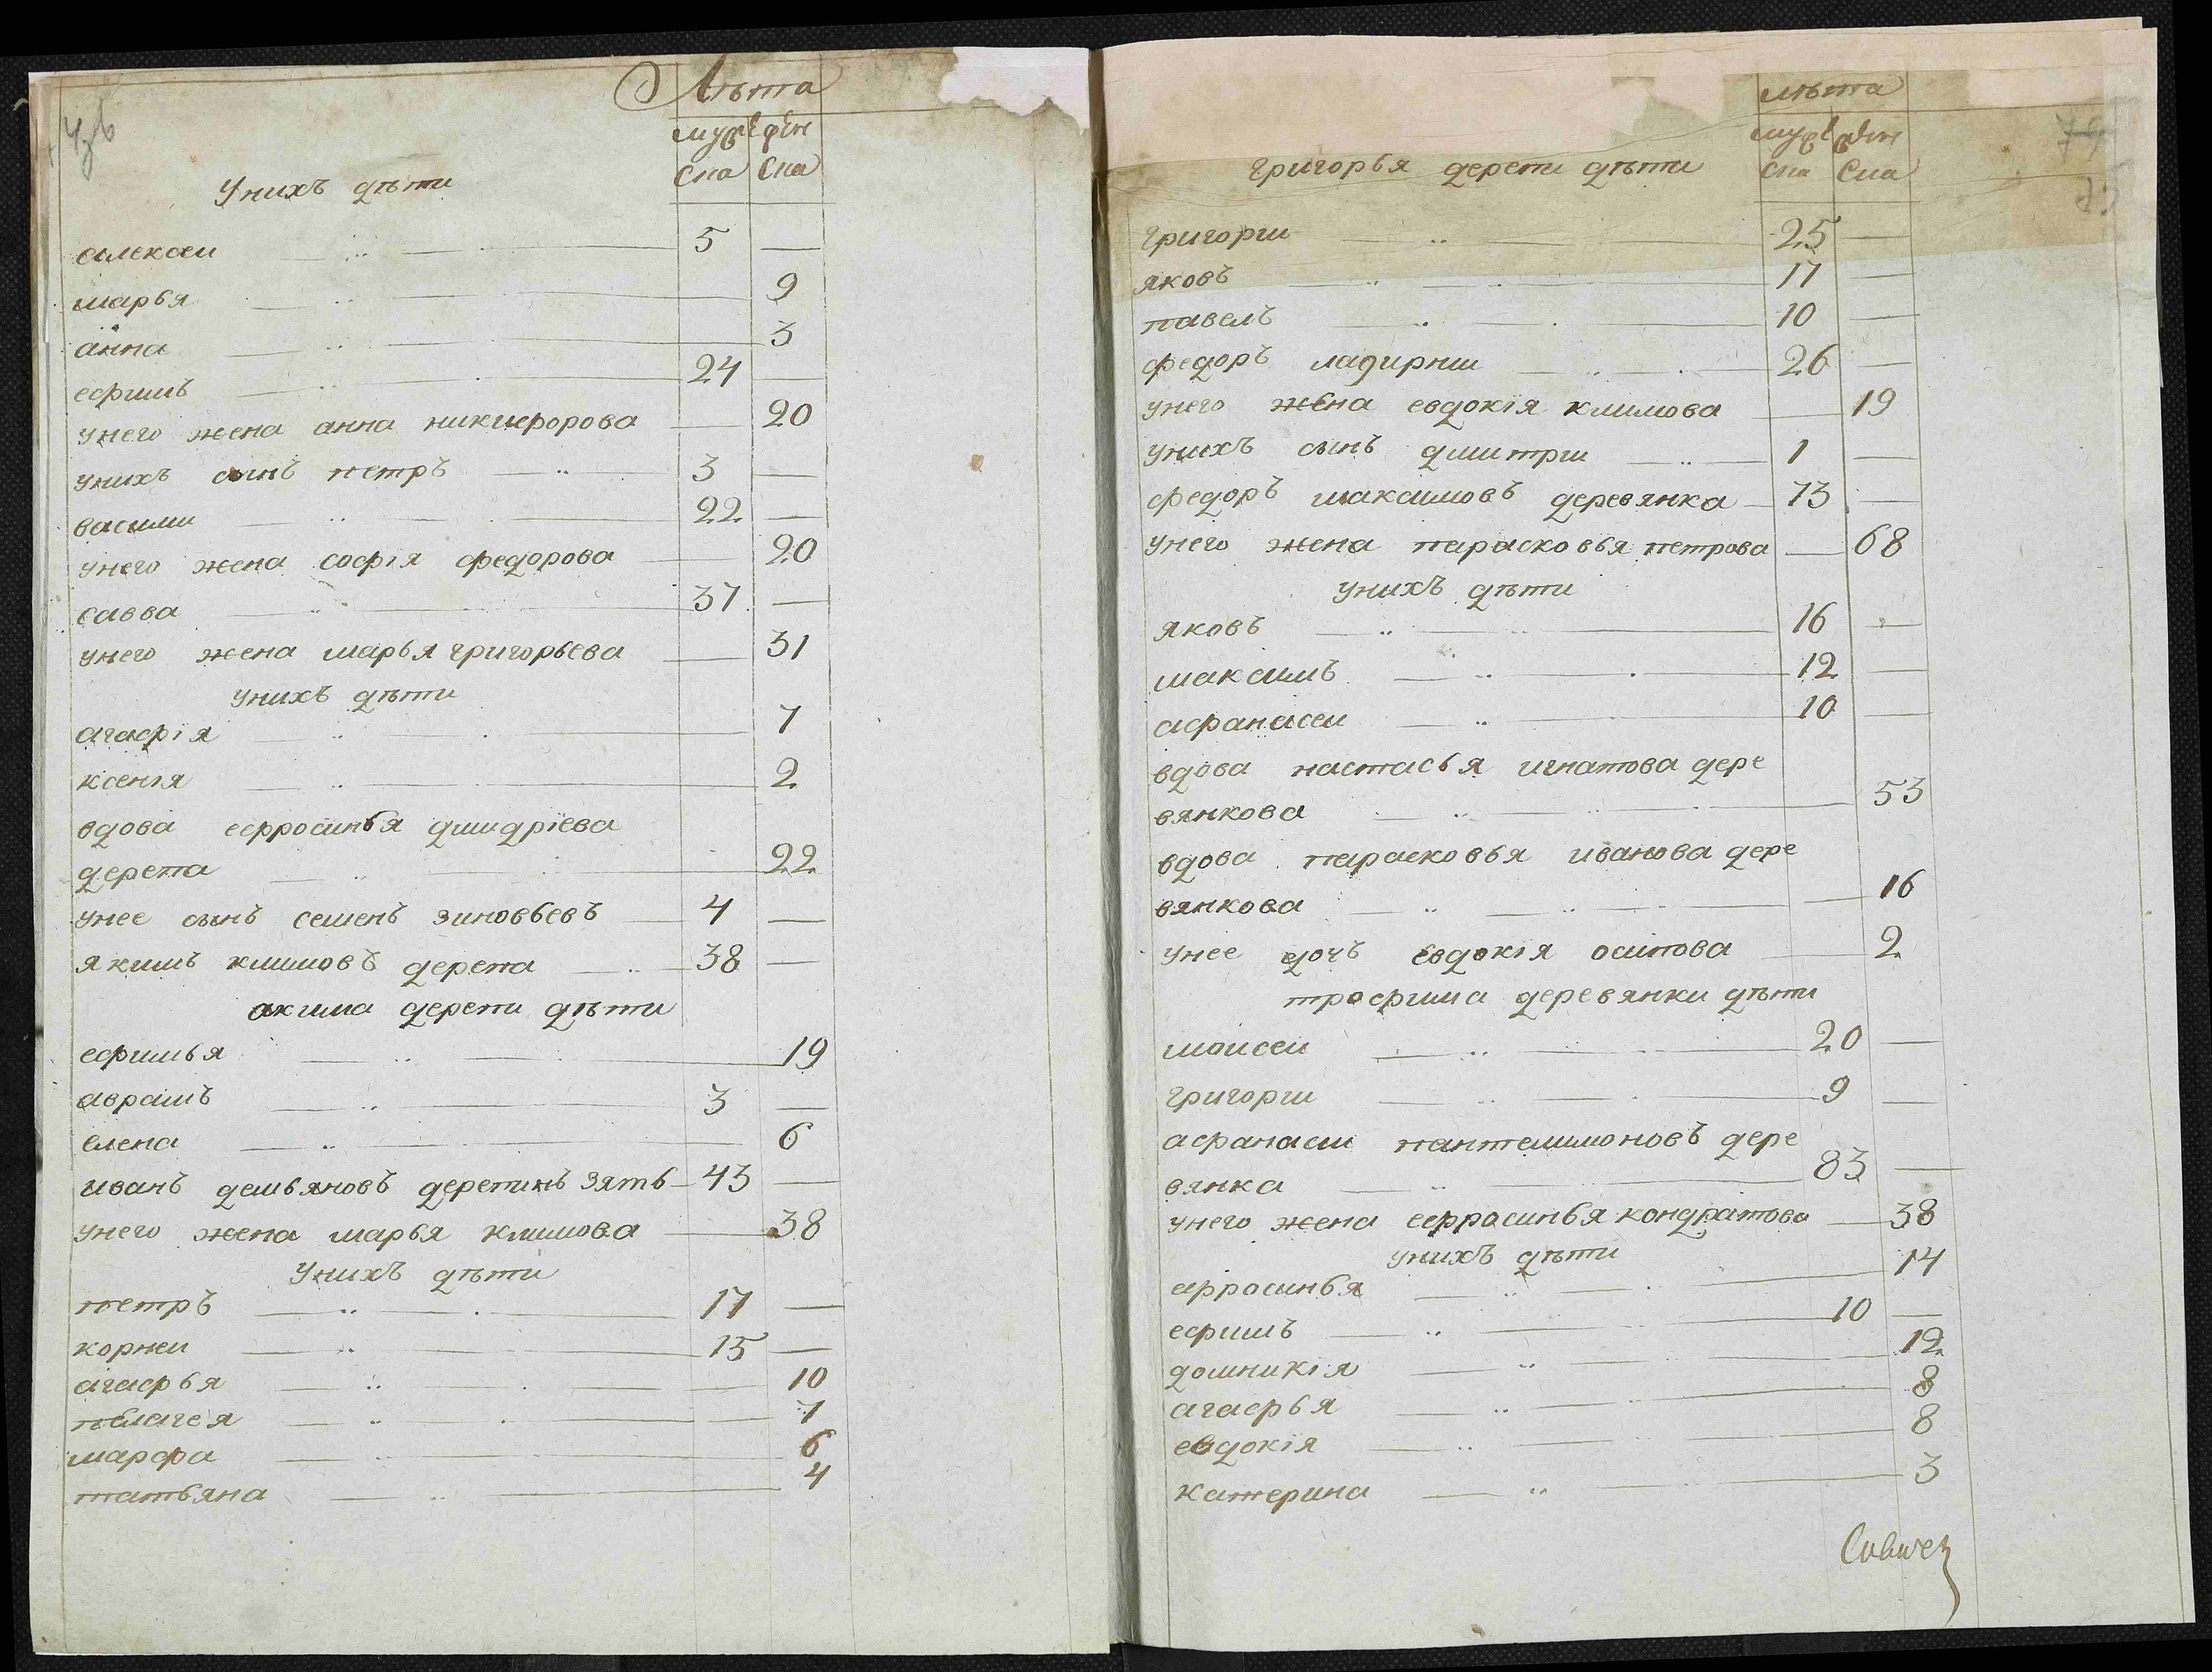 Лѣта
муже женс
Ска Ска
Унихъ дѣти
алексеи 5 —
марья 9
анна 3
ефимъ 24 —
унего жена анна никифорова — 20
унихъ сынъ петръ 3 —
василии 22 —
унего жена софія федорова — 20
савва 37 —
унего жена марья григорьева — 31
унихъ дѣти
агафія 7
ксенія 2
вдова ефросинья дмидріева
дерепа 22
унее сынъ семенъ зиновьевъ 4 —
якимъ климовъ дерепа 38 —
акима дерепи дѣти
ефимья 19
аврамъ 3 —
елена 6
иванъ демьяновъ дерепинъ зять 43 —
унего жена марья климова — 38
Унихъ дѣти
петръ 17 —
корнеи 15 —
агафья 10
пелагея 7
марфа 6
татьяна 4
лѣта
муже женс
ска Ска
григорья дерепи дѣти
григории 25 —
яковъ 17 —
павелъ 10 —
федоръ 26 —
унего жена евдокія климова — 19
унихъ сынъ дмитрии 1 —
федоръ максимовъ деревянка 73 —
унего жена парасковья петрова — 68
унихъ дѣти
яковъ 16 —
максимъ 12 —
афанасеи 10 —
вдова настасья игнатова дере
вянкова 53
вдова парасковья иванова дере
вянкова 16
унее дочь евдокія осипова 2
трофима деревянки дѣти
моисеи 20 —
григории 9 —
афанасеи пантелимоновъ дере
вянка 83 —
унего жена ефросинья кондратова — 38
унихъ дѣти
ефросинья 14
ефимъ 10 —
домникія 12
агафья 8
евдокія 8
катерина 3